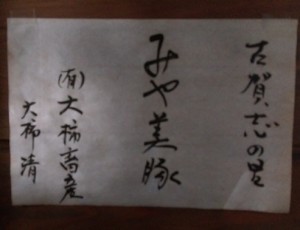 古賀志の里
みや美豚
(有)大柿畜産
大柿清